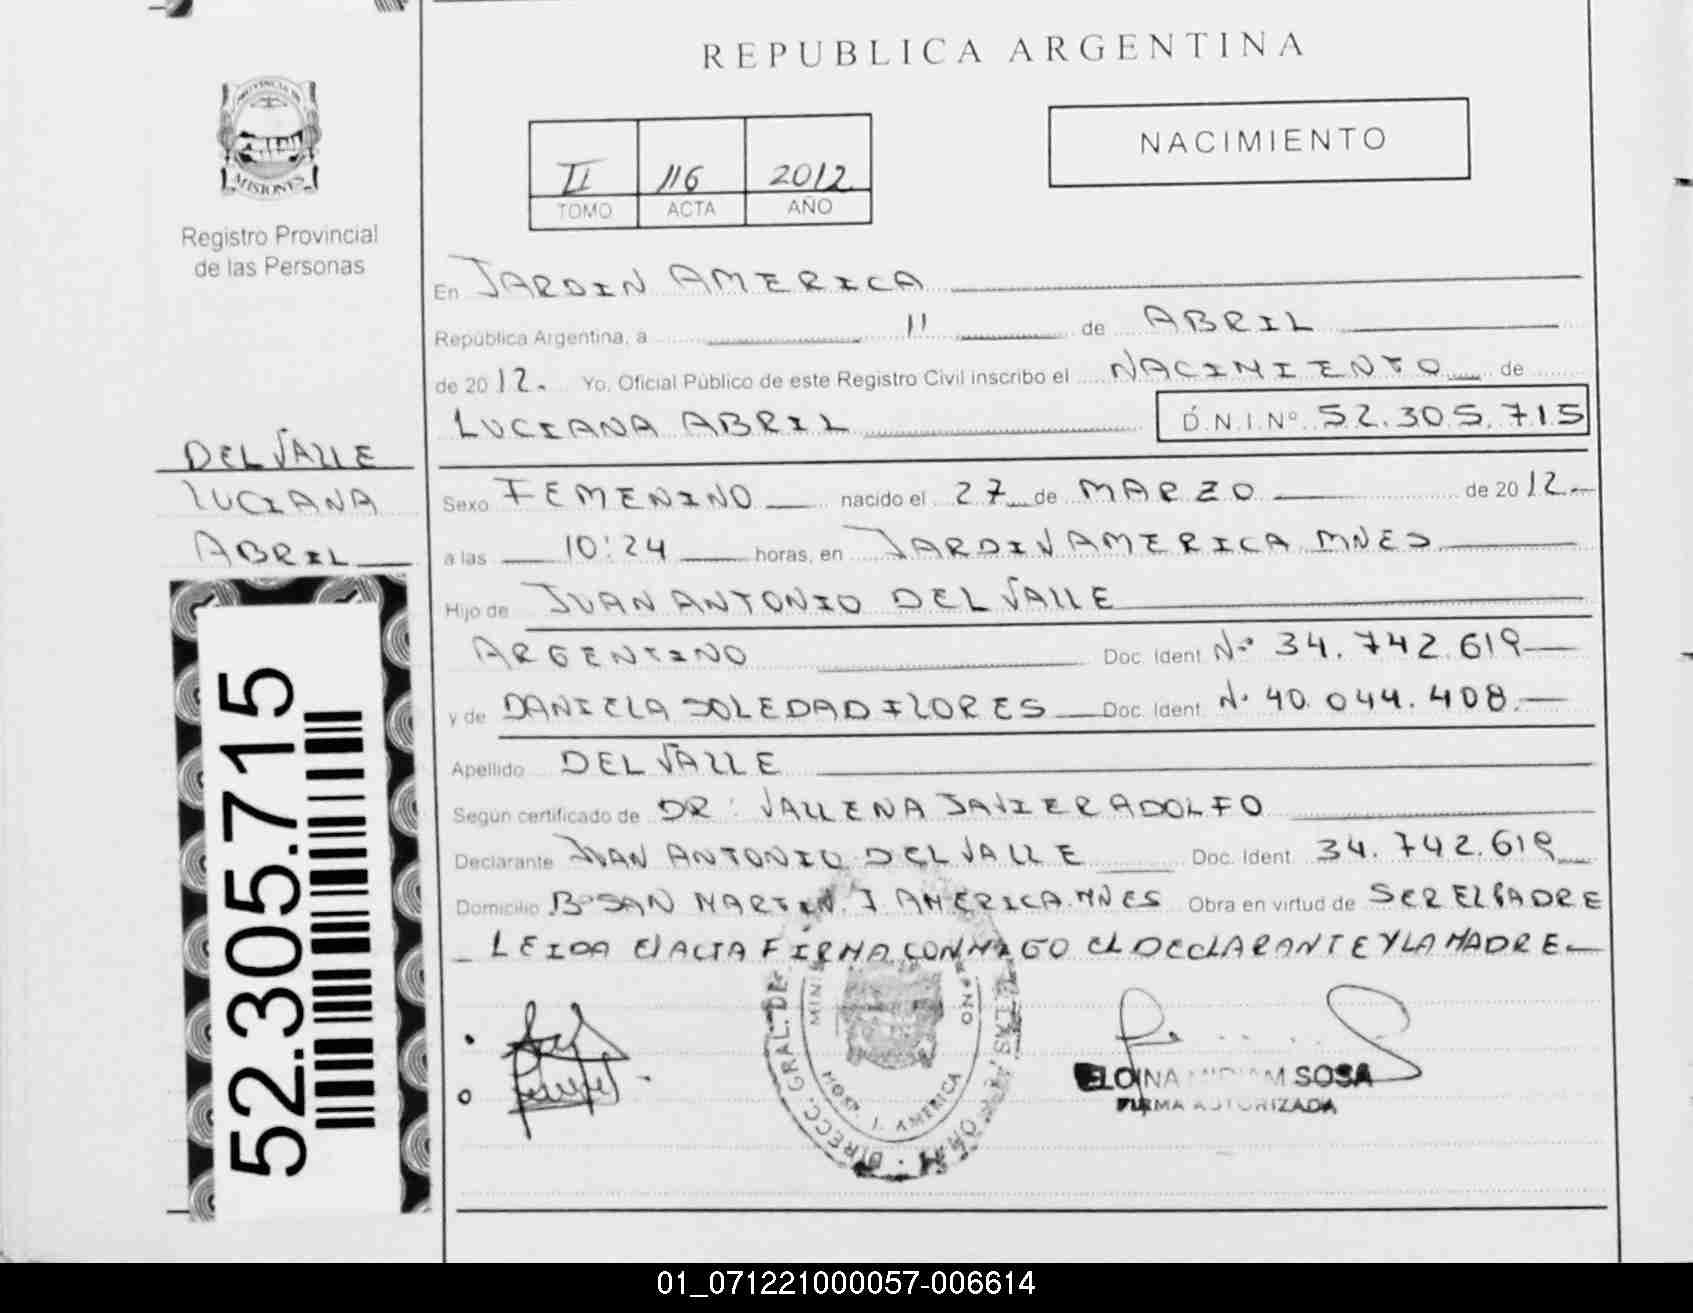 REPUBLICA ARGENTINA
PROVINCIA DE
MISIONES
Registro Provincial
de las Personas
NACIMIENTO
II 116 2012
TOMO ACTA AÑO
En JARDIN AMERICA
República Argentina, a 11 de ABRIL
de 2012. Yo, Oficial Público de este Registro Civil inscribo el NACIMIENTO de
LUCIANA ABRIL D.N.I.Nº 52.305.715
DEL VALLE
LUCIANA
ABRIL
Sexo FEMENINO nacido el 27 de MARZO de 2012
a las 10:24 horas, en JARDIN AMERICA MNES
Hijo de JUAN ANTONIO DEL VALLE
ARGENTINO Doc. Ident. Nº 34.742.619
y de DANIELA SOLEDAD FLORES Doc. Ident. Nº 40.044.408
Apellido DEL VALLE
Según certificado de DR: VALLENA JAVIER ADOLFO
Declarante JUAN ANTONIO DEL VALLE Doc. Ident. 34.742.619
Domicilio Bº SAN MARTIN. J. AMERICA. MNES Obra en virtud de SER EL PADRE
LEIDA El ACTA FIRMA CONMIGO EL DECLARANTE Y LA MADRE
52.305.715
DIRECC. GRAL. DE
J. AMERICA
ELOINA MIRIAM SOSA
FIRMA AUTORIZADA
01_071221000057-006614